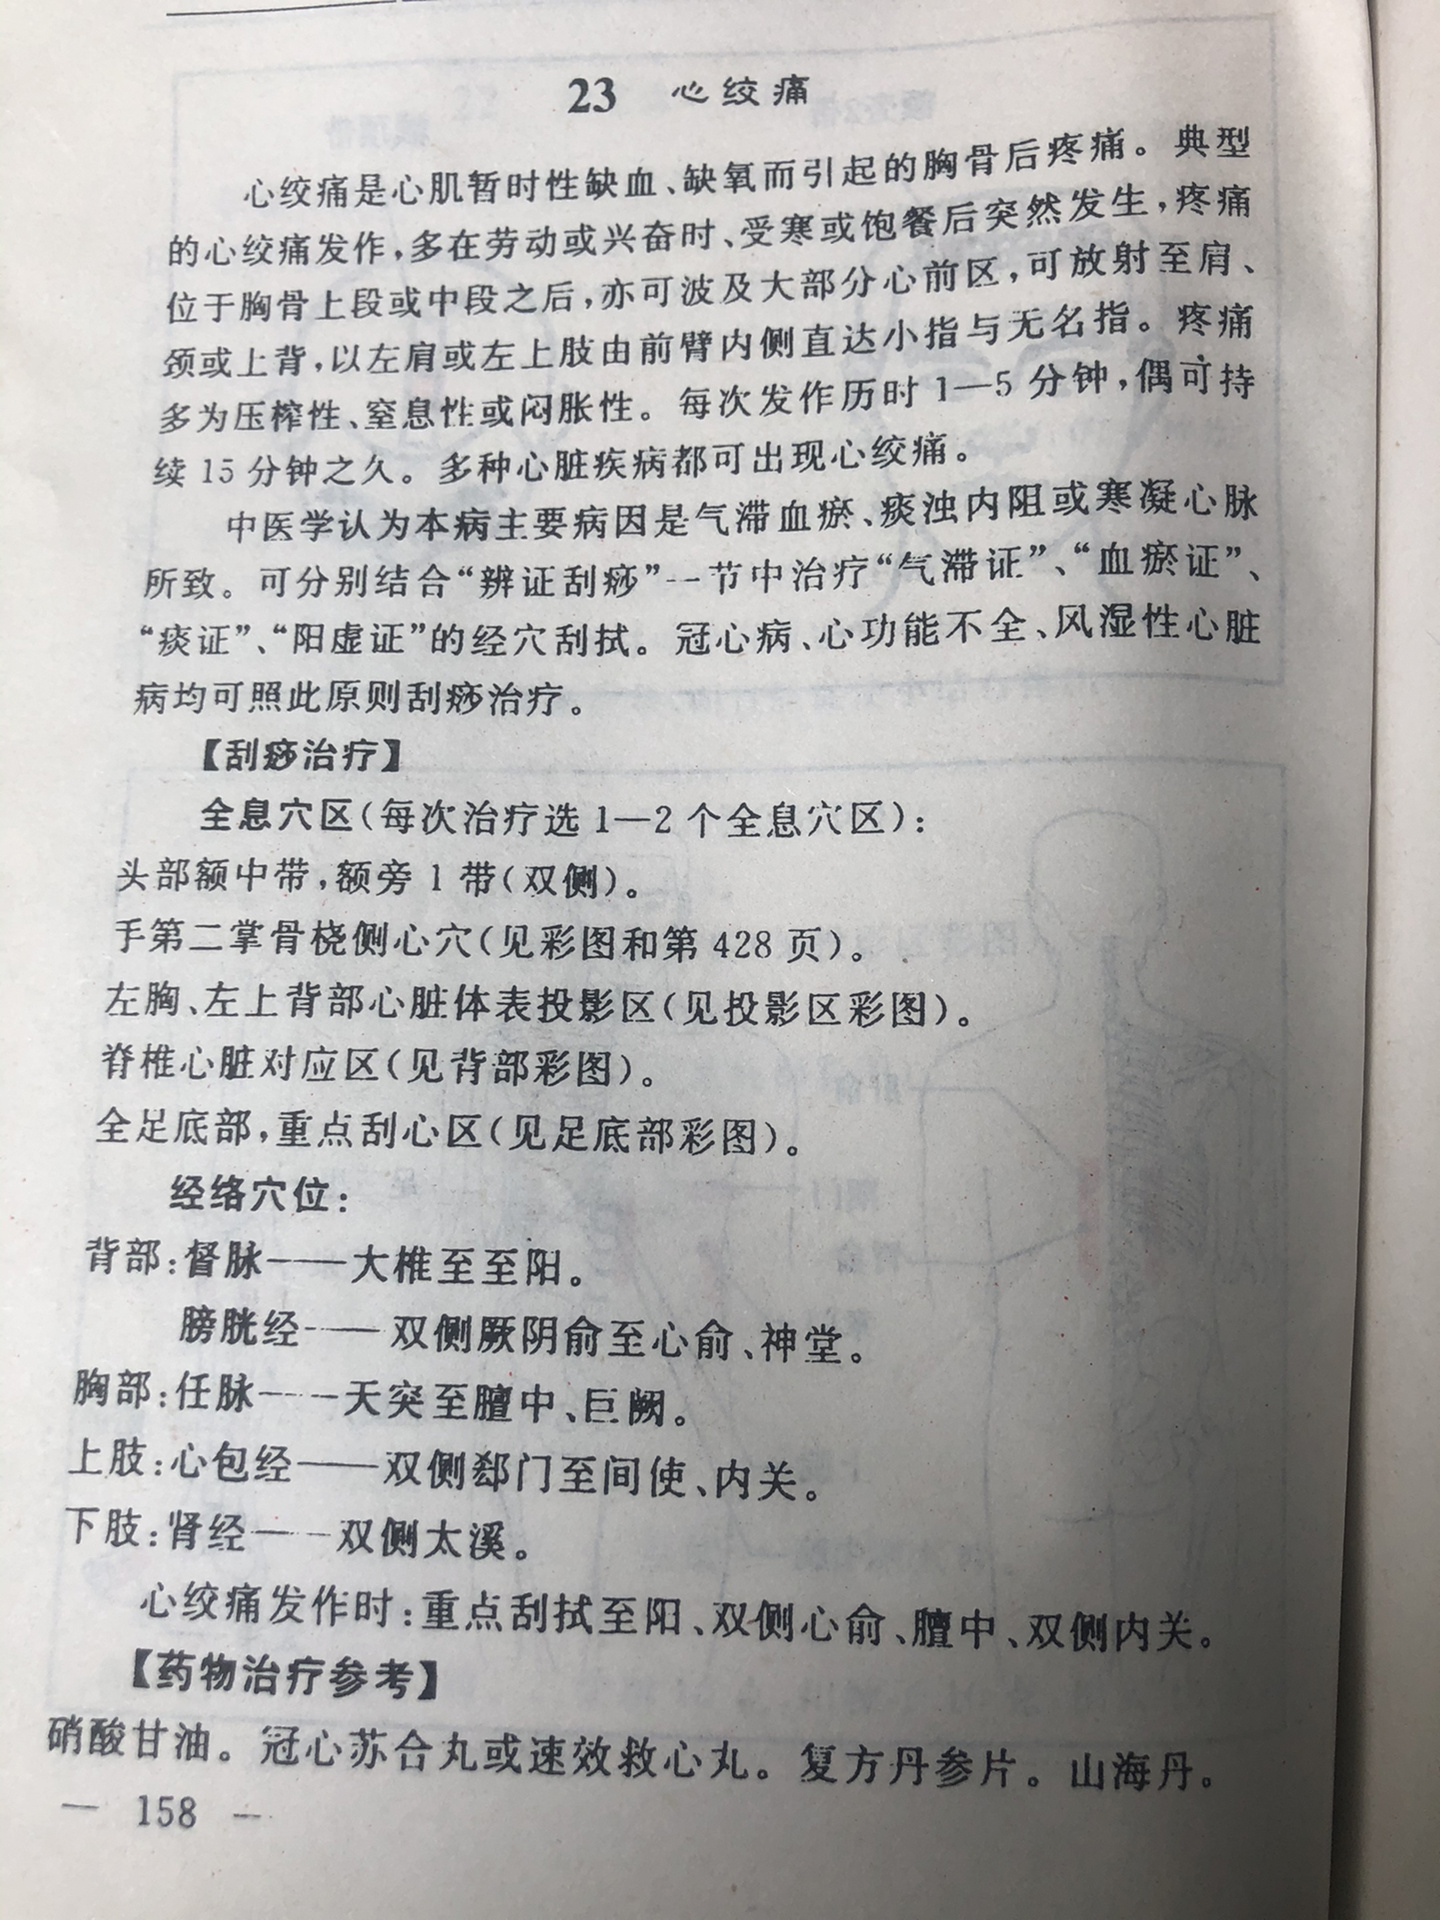 23 心绞痛
心绞痛是心肌暂时性缺血、缺氧而引起的胸骨后疼痛。典型
的心绞痛发作,多在劳动或兴奋时、受寒或饱餐后突然发生,疼痛
位于胸骨上段或中段之后,亦可波及大部分心前区,可放射至肩、
颈或上背,以左肩或左上肢由前臂内侧直达小指与无名指。疼痛
多为压榨性、窒息性或闷胀性。每次发作历时1—5分钟,偶可持
续15分钟之久。多种心脏疾病都可出现心绞痛。
中医学认为本病主要病因是气滞血瘀、痰浊内阻或寒凝心脉
所致。可分别结合“辨证刮痧”一节中治疗“气滞证”、“血瘀证”、
“痰证”、“阳虚证”的经穴刮拭。冠心病、心功能不全、风湿性心脏
病均可照此原则刮痧治疗。
【刮痧治疗】
全息穴区(每次治疗选1—2个全息穴区):
头部额中带,额旁1带(双侧)。
手第二掌骨桡侧心穴(见彩图和第428页)。
左胸、左上背部心脏体表投影区(见投影区彩图)。
脊椎心脏对应区(见背部彩图)。
全足底部,重点刮心区(见足底部彩图)。
经络穴位:
背部:督脉——大椎至至阳。
膀胱经——双侧厥阴俞至心俞、神堂。
胸部:任脉——天突至膻中、巨阙。
上肢:心包经——双侧郄门至间使、内关。
下肢:肾经——双侧太溪。
心绞痛发作时:重点刮拭至阳、双侧心俞、膻中、双侧内关。
【药物治疗参考】
硝酸甘油。冠心苏合丸或速效救心丸。复方丹参片。山海丹。
— 158 —